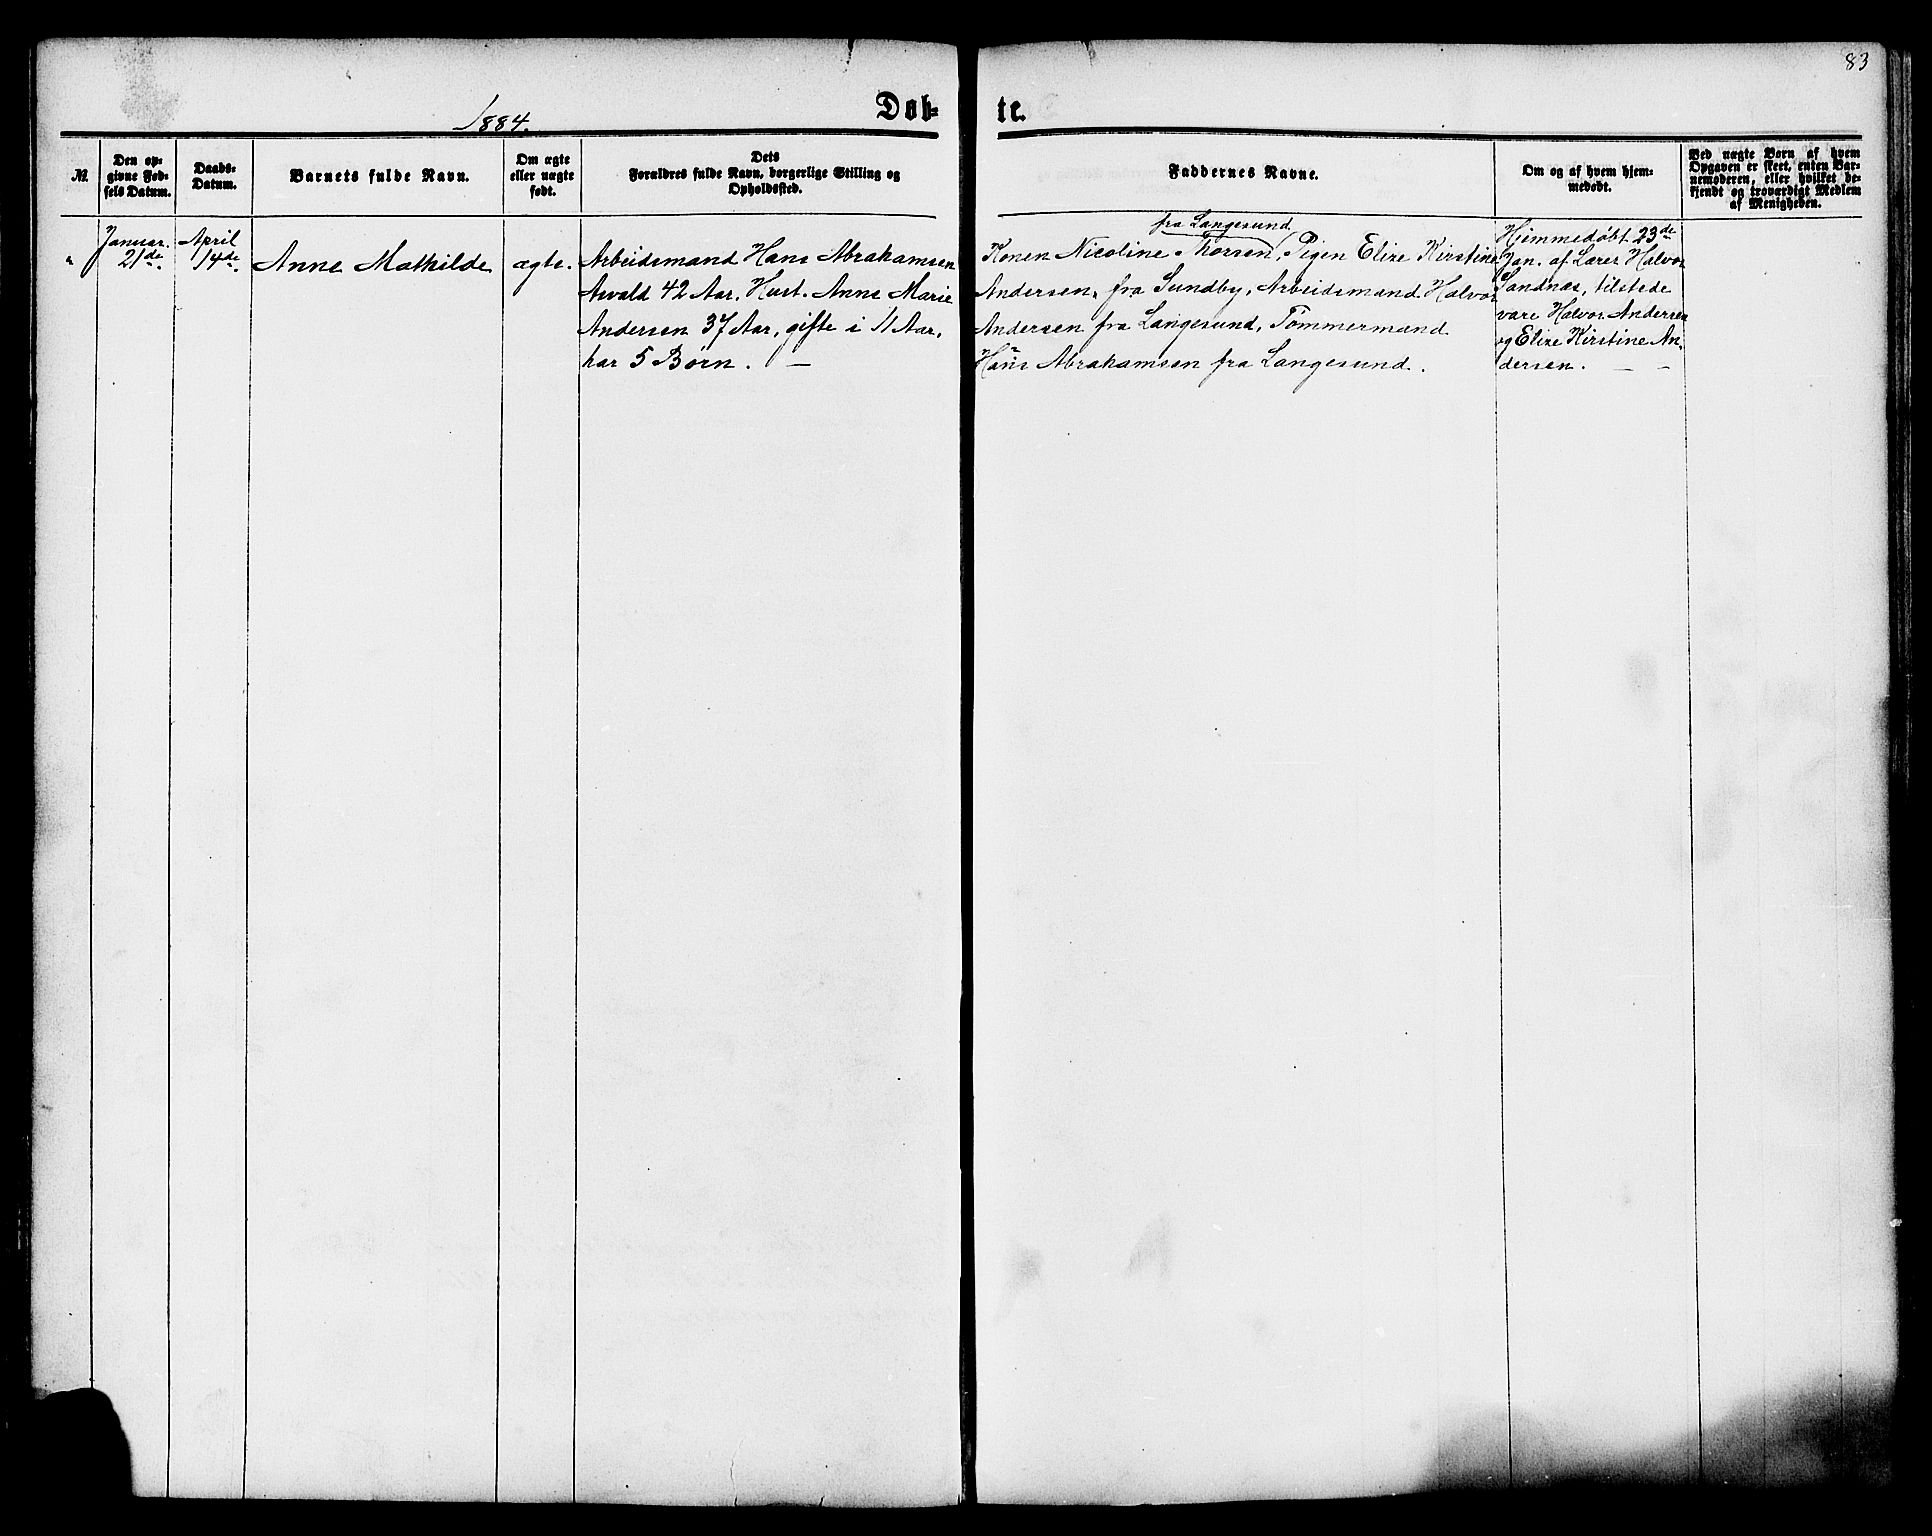 83
1884.
Døb-
te.
№
Den op-
givne Fød-
sels Datum.
Daabs-
Datum.
Barnets fulde Navn.
Om ægte
eller uægte
født.
Dets
Forældres fulde Navn, borgerlige Stilling og
Opholdssted.
Faddernes Navne.
Om og af hvem hjem-
medøbt.
Ved uægte Børn af hvem
Opgaven er skeet, enten Bar-
nemoderen, eller hvilket be-
kjendt og troværdigt Medlem
af Menigheden.
"
Januar.
21de
April
14de
Anne Mathilde
ægte.
Arbeidsmand Hans Abrahamsen
Asvald 42 Aar. Hust. Anne Marie
Andersen 37 Aar, gifte i 11 Aar,
har 5 Børn. —
fra Langesund
Konen Nicoline Thorsen, Pigen Elise Kirstine
Andersen, fra Sundby, Arbeidsmand Halvor
Andersen fra Langesund, Tømmermand
Hans Abrahamsen fra Langesund.
Hjemmedøbt 23de
Jan. af Lærer Halvor
Sandnæs, tilstede
vare Halvor Andersen
og Elise Kirstine An-
dersen. — —